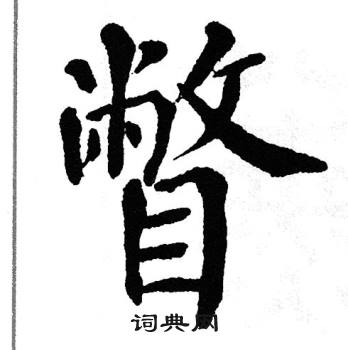 瞥
词典网